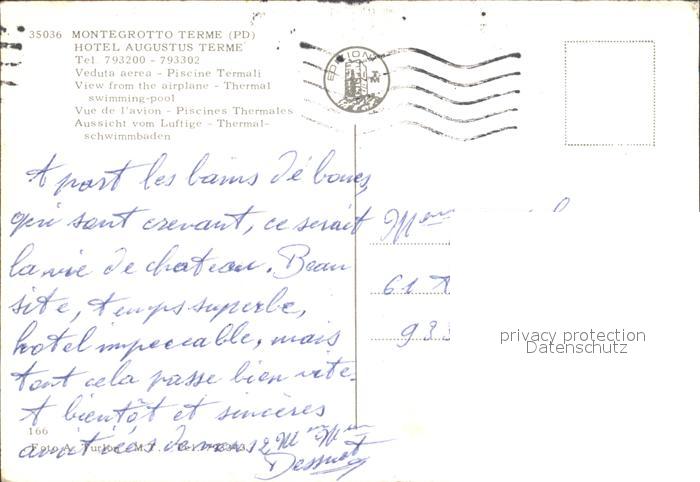 35036 MONTEGROTTO TERME (PD)
HOTEL AUGUSTUS TERME
Tel. 793200 - 793302
Veduta aerea - Piscine Termali
View from the airplane - Thermal
swimming-pool
Vue de l'avion - Piscines Thermales
Aussicht vom Luftige - Thermal-
schwimmbaden
EDIZIONI
A part les bains de boues
qui sont crevant, ce serait
la vie de chateau. Beau
site, temps superbe,
hotel impeccable, mais
tout cela passe bien vite.
A bientôt et sincères
amitiés de nous 2
166
61
93
privacy protection
Datenschutz